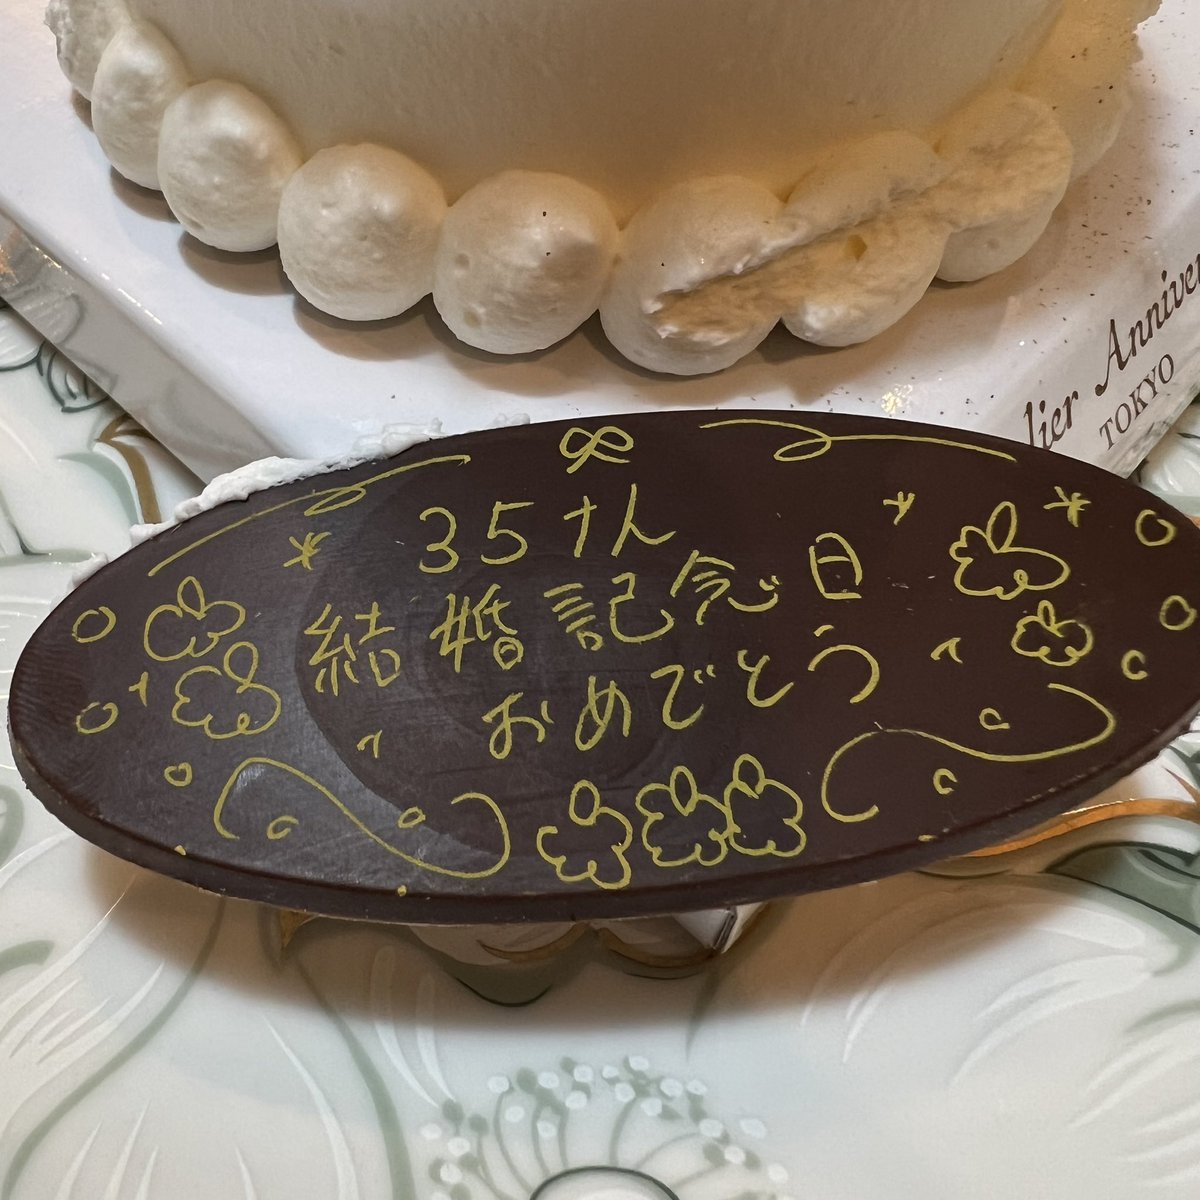 35th
結婚記念日
おめでとう
lier Anniver
TOKYO